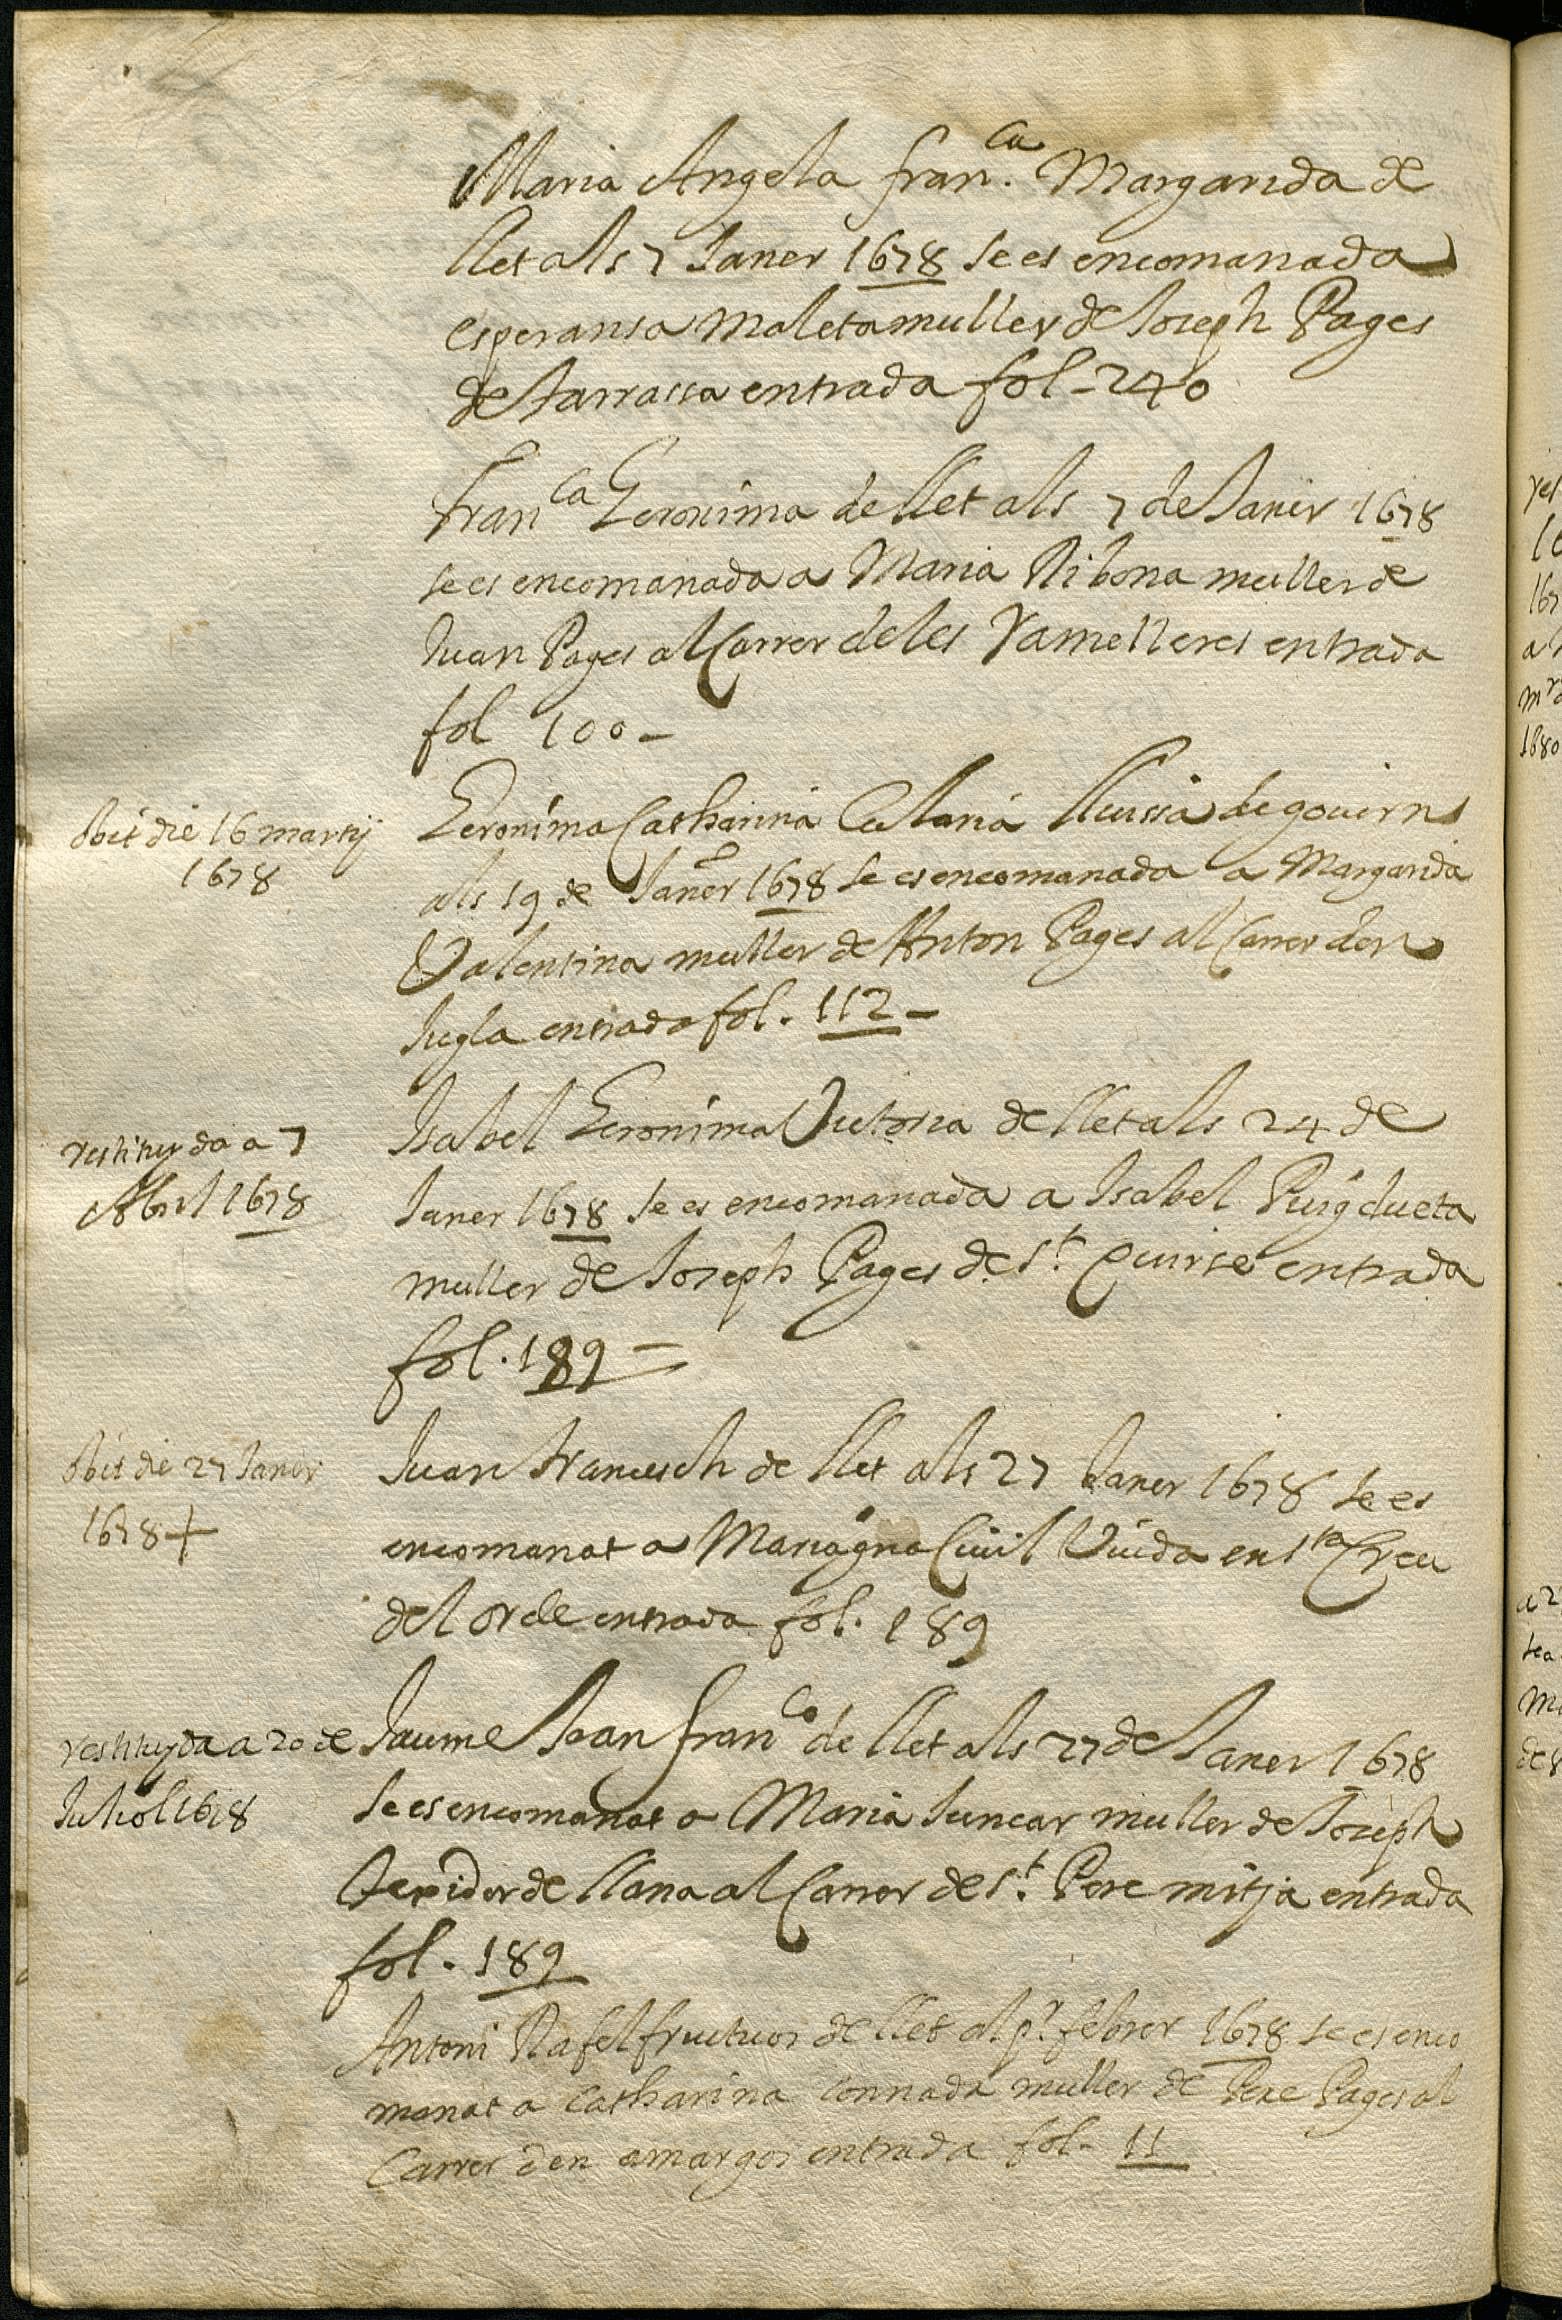 Maria Angela fran.ca Margarida de
llet als 7 Janer 1678 se es encomanada
esperansa Maleta muller de Joseph Pages
de tarrassa entrada fol - 240
Fran ca Geronima de llet als 7 de Janer 1678
se es encomanada a Maria Ribona muller de
Juan Pages al Carrer de les Ramelleres entrada
fol 100 -
obit die 16 martij
1678
Geronima Catharina Maria llussia de govern
als 19 de Janer 1678 se es encomanada a Margarida
Valentina muller de Anton Pages al Carrer den
Jugla entrada fol. 112 -
restituyda a 7
Abril 1678
Isabel Geronima Victoria de llet als 24 de
Janer 1678 se es encomanada a Isabel Puig dueta
muller de Joseph Pages de St. Quirse entrada
fol. 189 =
obit die 27 Janer
1678 +
Juan Francesch de llet als 27 Janer 1678 se es
encomanat a Mariagna Civil Viuda en Sta Creu
del orde entrada fol. 189
restituyda a 20 de
Juliol 1678
Jaume Juan fran co de llet als 27 de Janer 1678
se es encomanat a Maria Juncar muller de Joseph
Texidor de llana al Carrer de St. Pere mitja entrada
fol. 189
Antoni Rafel fructuos de llet al pr. febrer 1678 se es enco
manat a Catharina Connada muller de Pere Pages al
Carrer den amargos entrada fol - 11